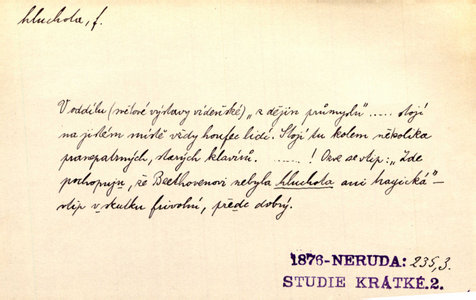 hluchota, f.
V oddílu (světové výstavy vídeňské) „z dějin průmyslu“ ..... stojí
na jistém místě vždy houfec lidí. Stojí tu kolem několika
prašpatných, starých klavírů. ........! Ozve se vtip: „Zde
pochopuju, že Beethovenovi nebyla hluchota ani tragická“ –
vtip v skutku frivolní, přece dobrý.
1876-NERUDA: 235,3.
STUDIE KRÁTKÉ.2.